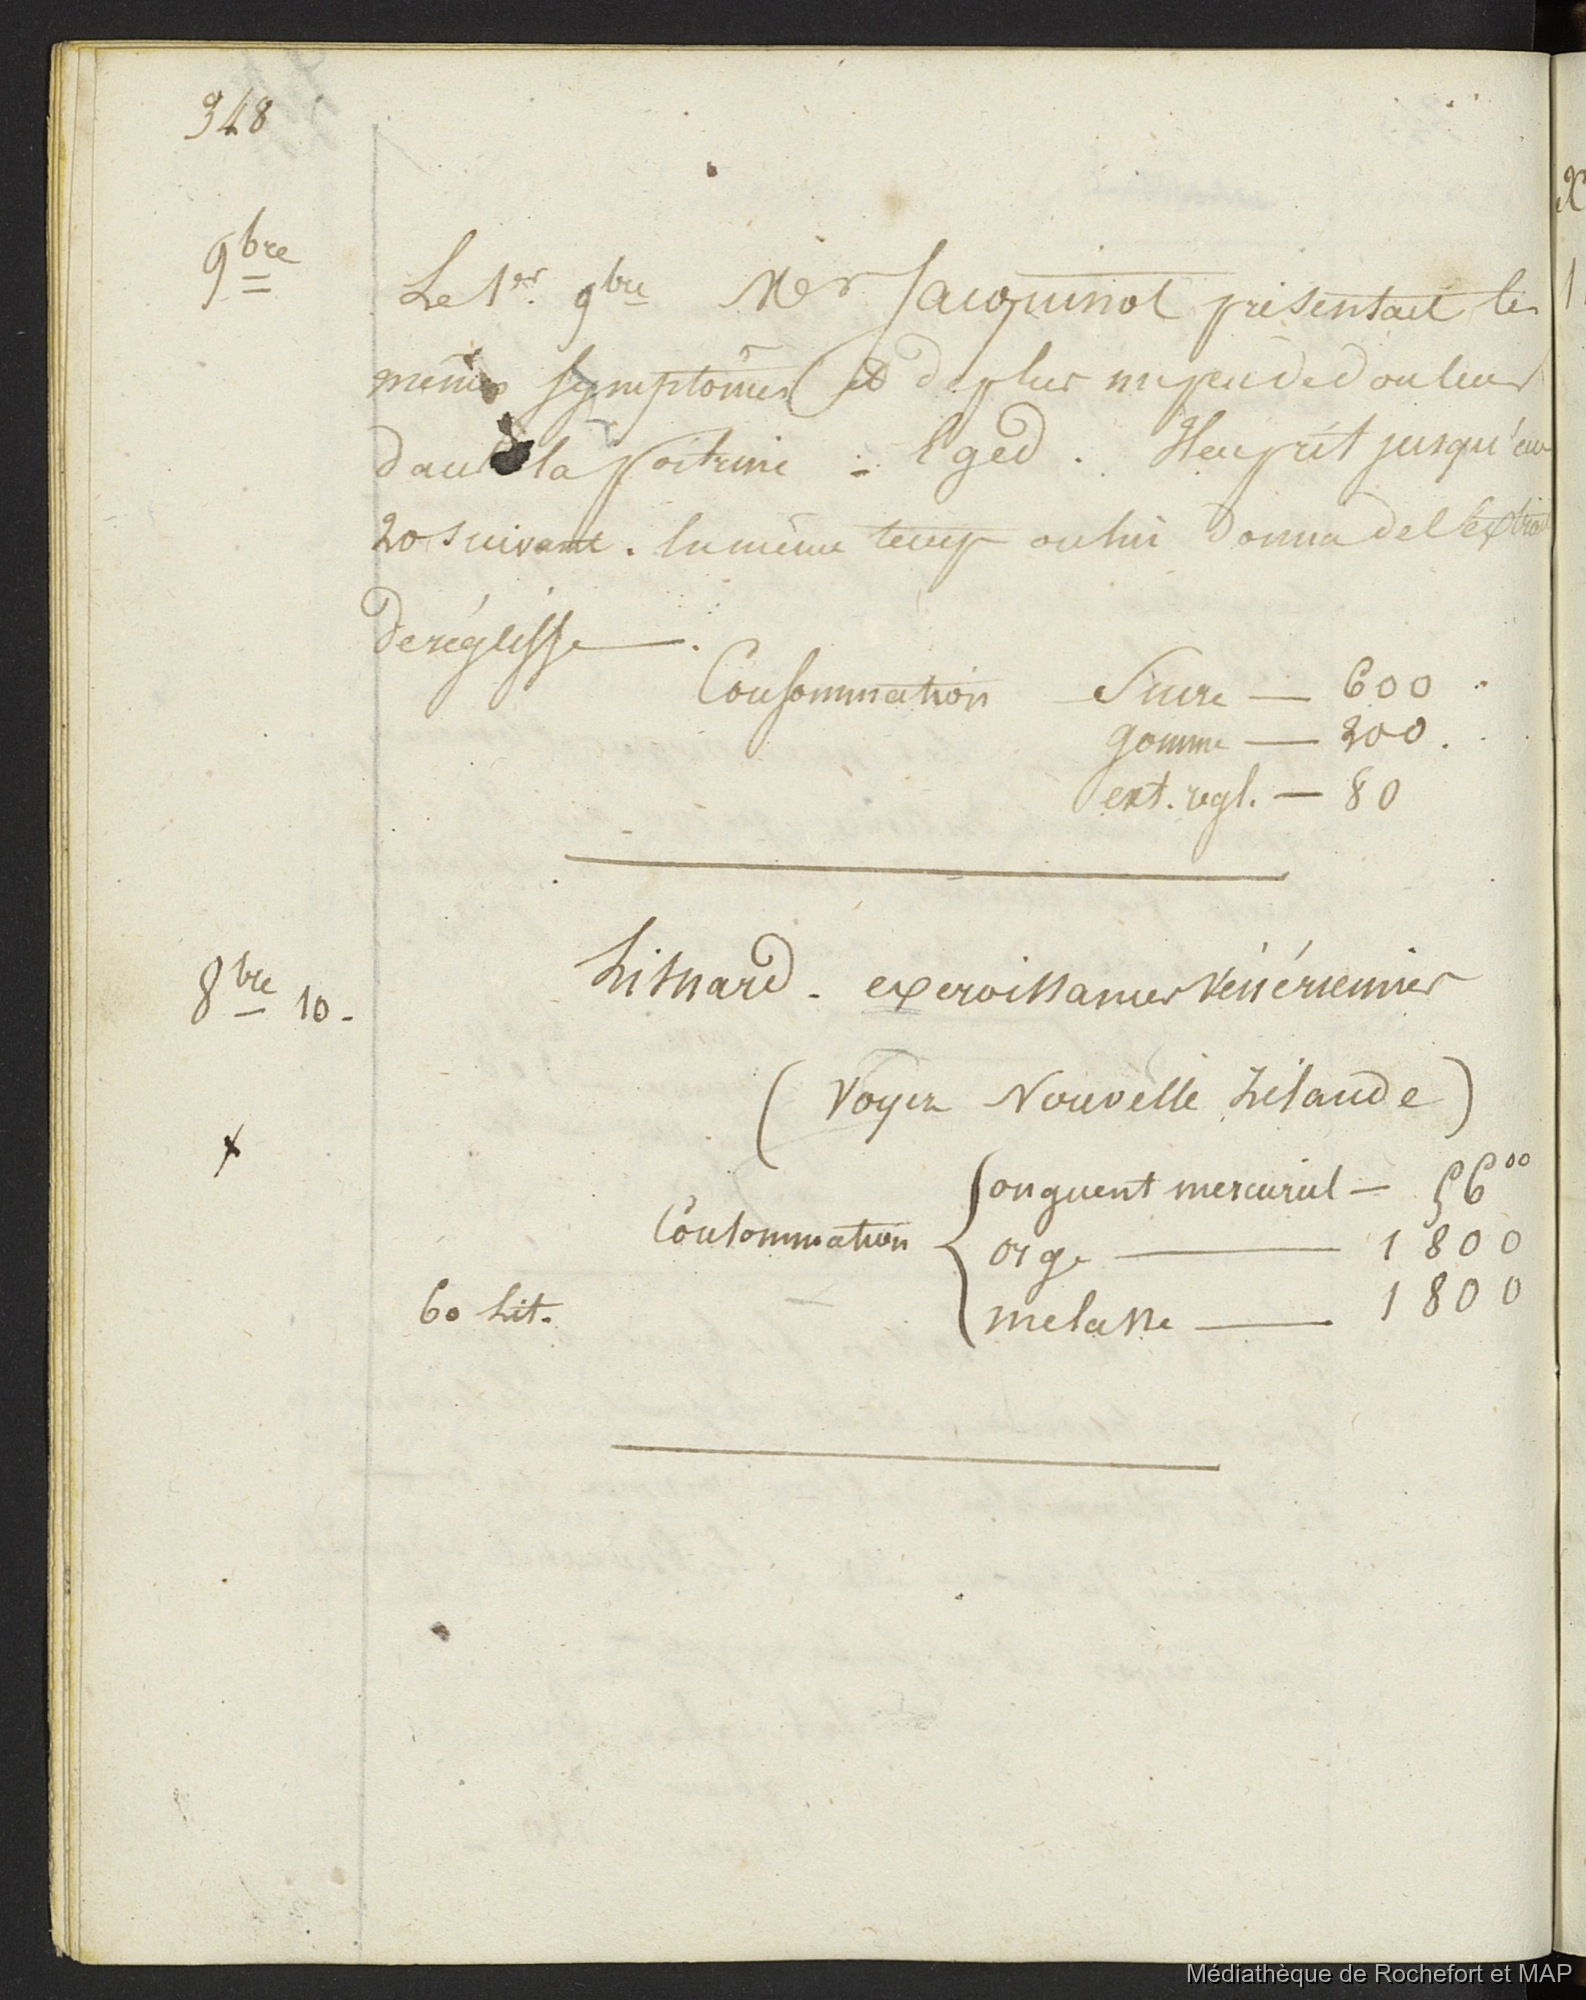 348
9bre
Le 1er 9bre Mr Jacquinot présentait les
mêmes symptômes et de plus un peu de douleur
dans la poitrine : Eged. Il en prit jusqu'au
20 suivant. En même temps on lui donna de l'extrait
de réglisse —.
Consommation Sucre — 600
gomme — 200.
ext. regl. — 80
8bre 10 - Lisnard - excroissances vénériennes
(Voyez Nouvelle Zélande)
x
onguent mercuriel — 56 00
Consommation orge — 1800
60 Lit. melasse — 1800
Médiathèque de Rochefort et MAP